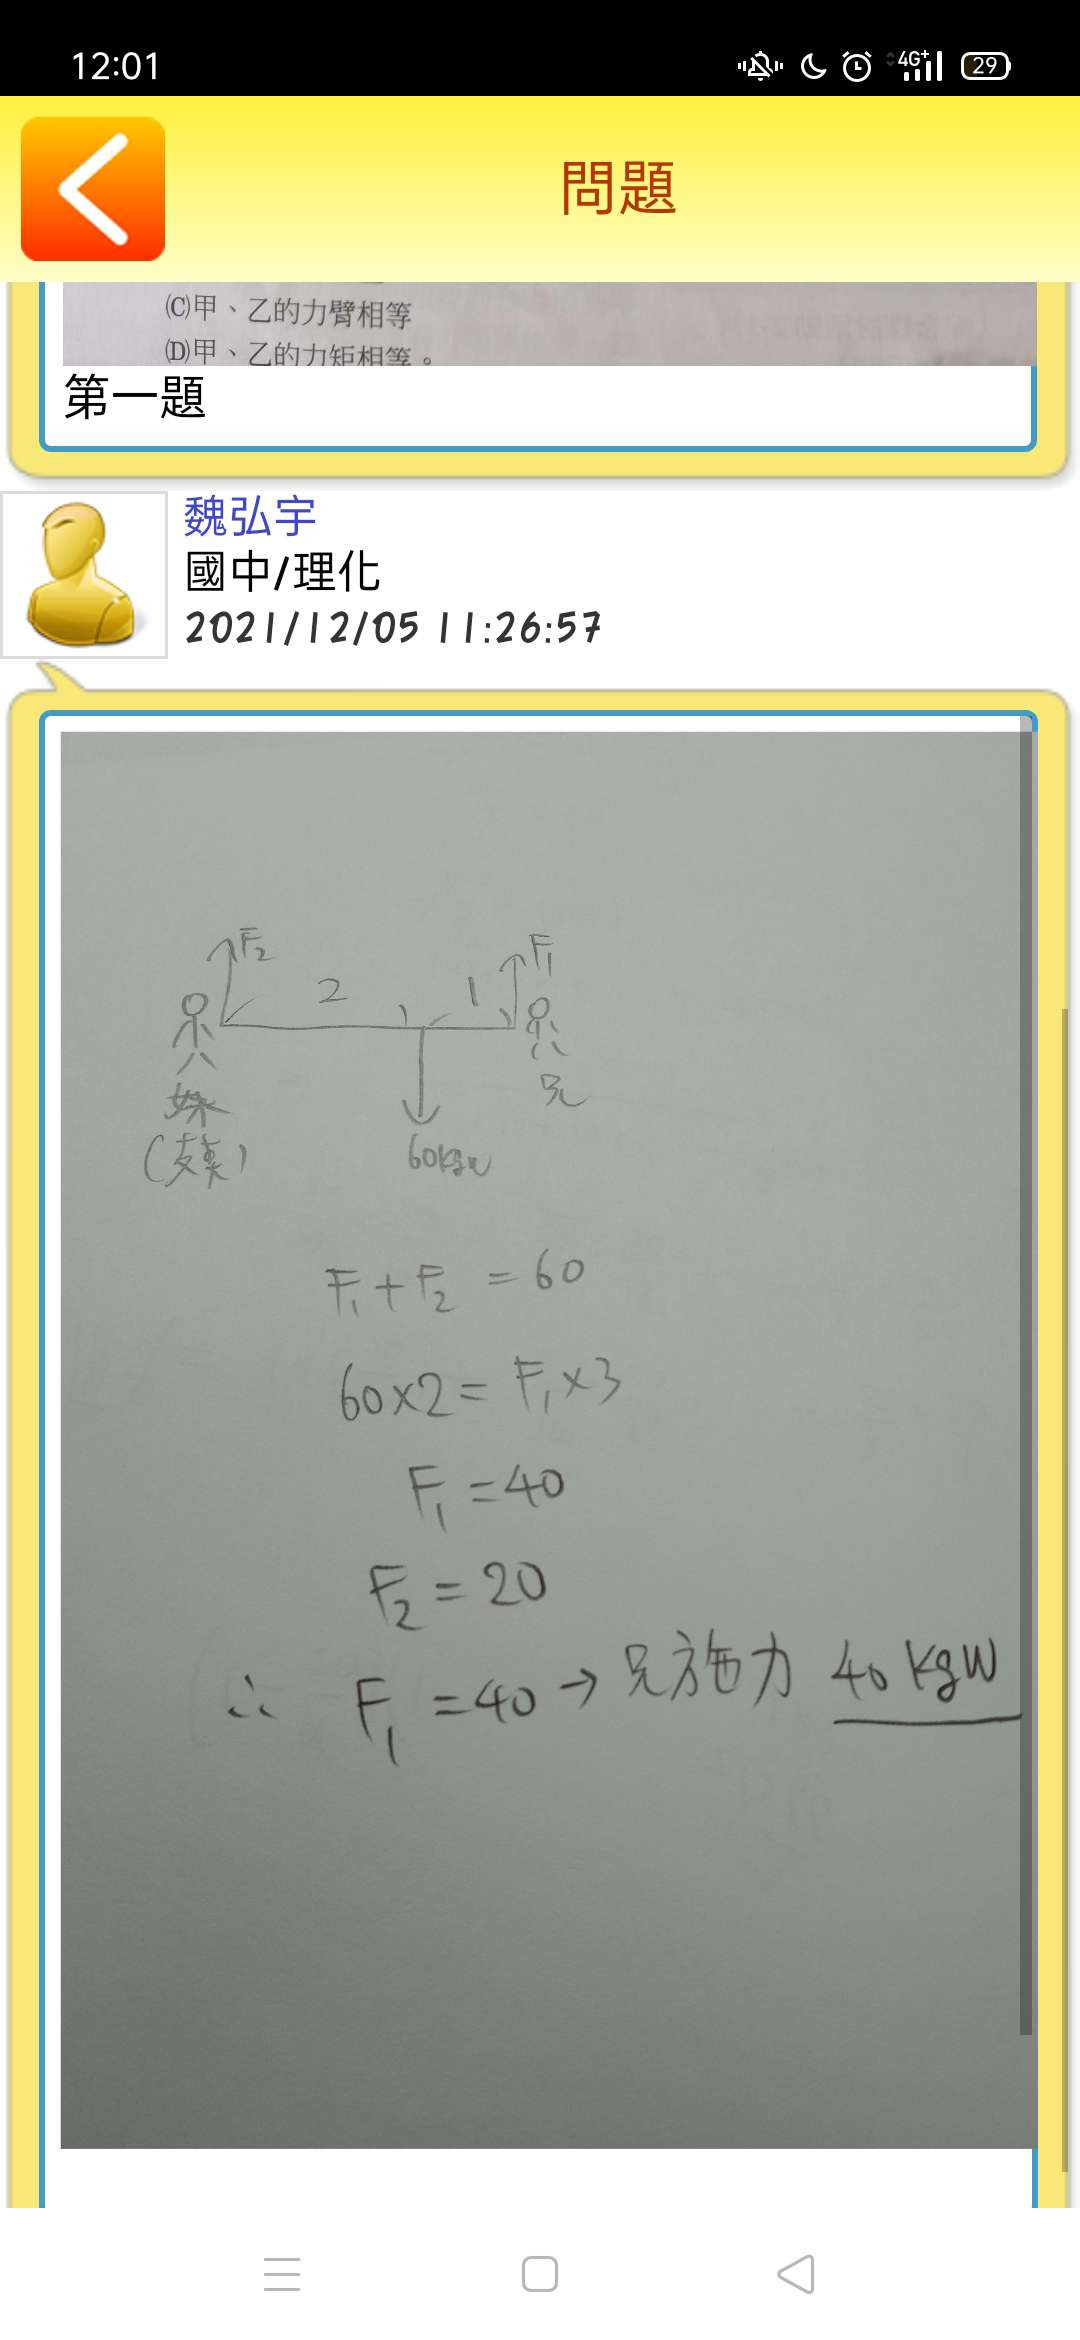 12:01
4G+
29
問題
(C)甲、乙的力臂相等
(D)甲、乙的力矩相等。
第一題
魏弘宇
國中/理化
2021/12/05 11:26:57
F₂
F₁
2
1
妹
兄
(支點)
60kgw
F₁+F₂ = 60
60×2= F₁×3
F₁ =40
F₂ = 20
∴ F₁ =40 → 兄施力 40 kgW